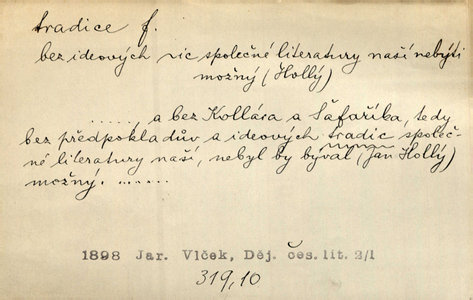 tradice f.
bez ideových tic společné literatury naší nebýti
možný (Hollý)
......, a bez Kollára a Šafaříka, tedy
bez předpokladův a ideových tradic společ-
né literatury naší, nebyl by býval (Jan Hollý)
možný. ......
1898 Jar. Vlček, Děj. čes. lit. 2/1
319,10